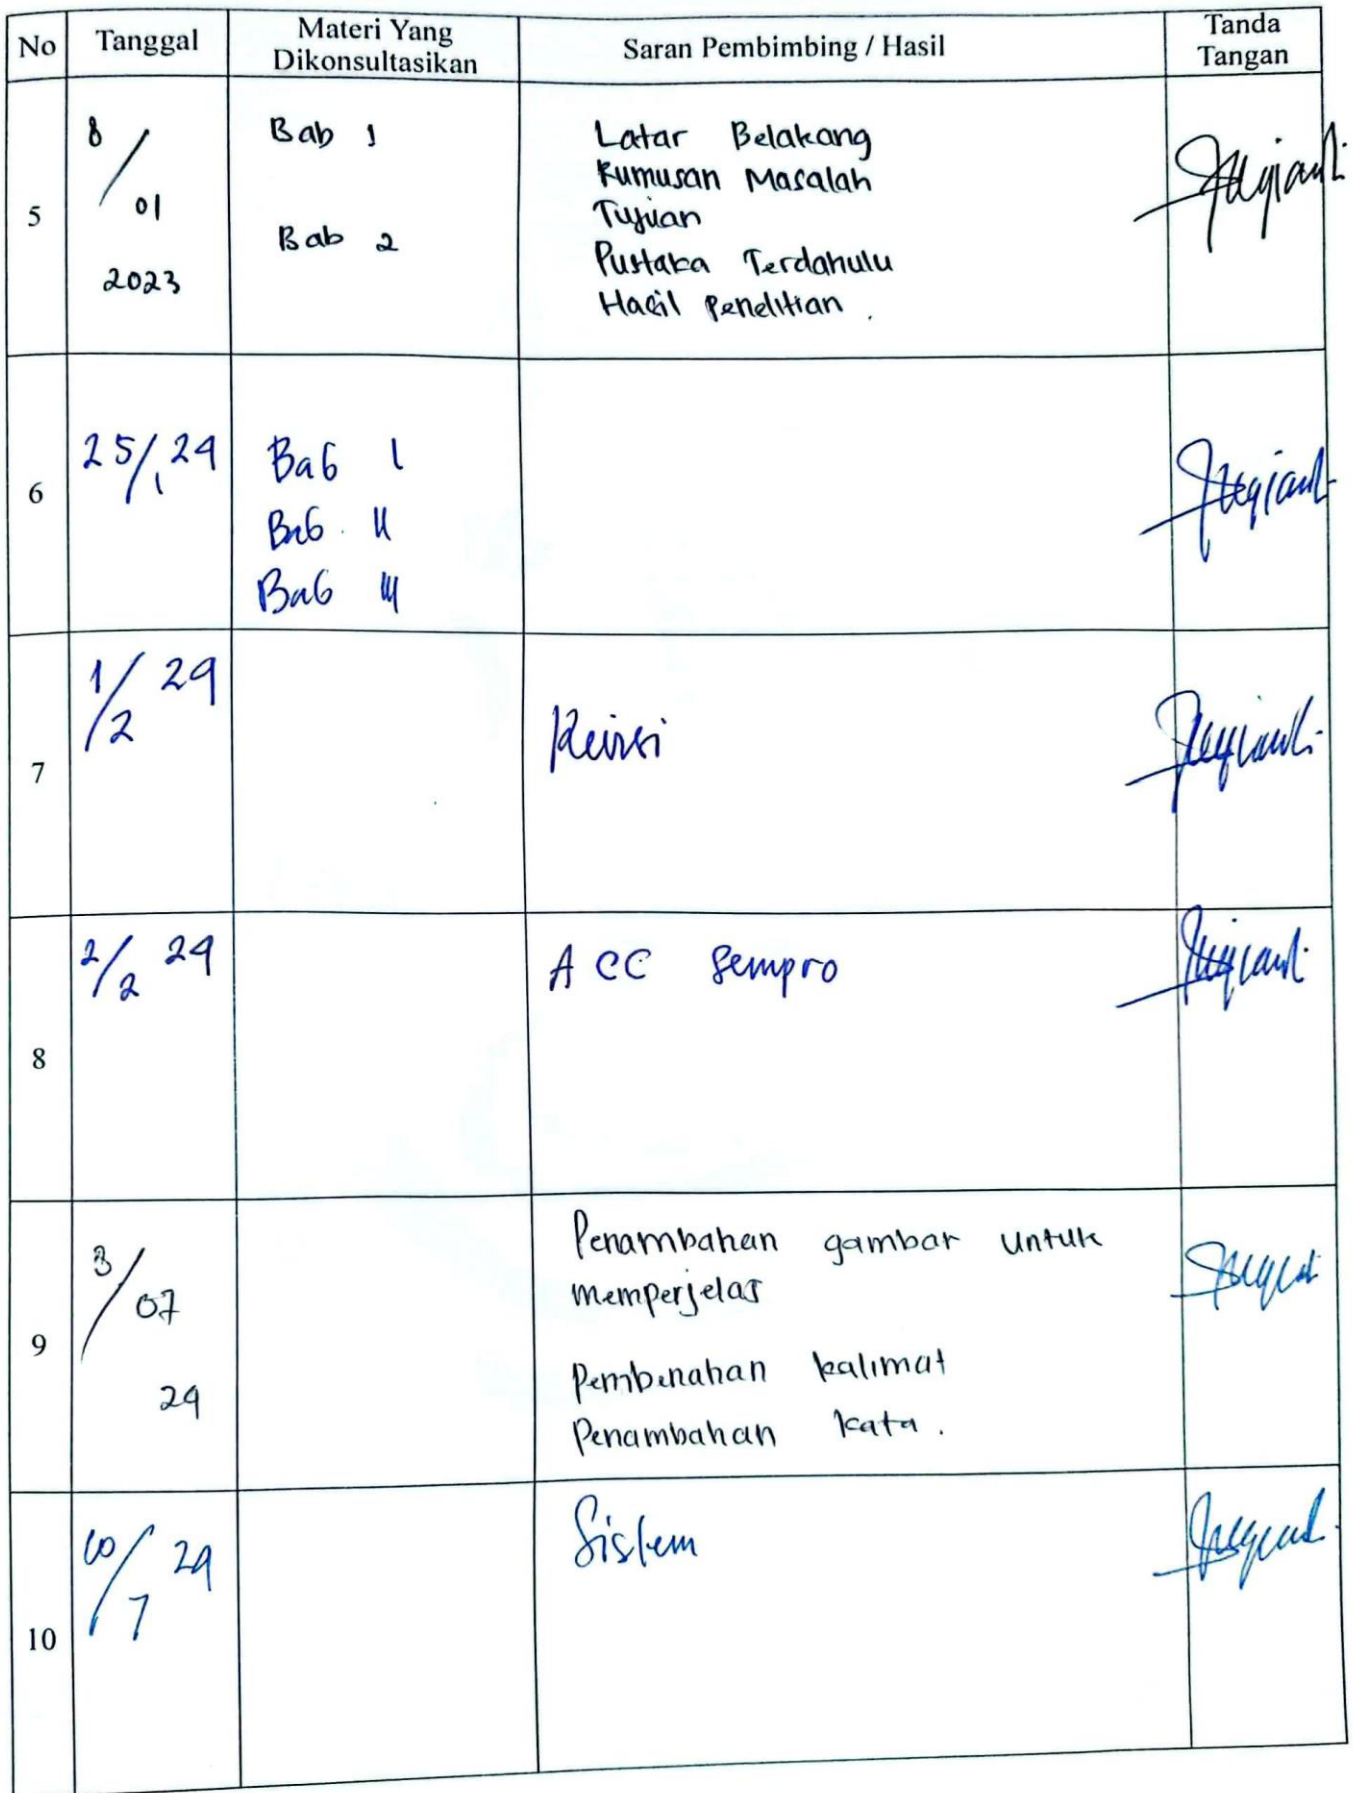 No Tanggal Materi Yang Dikonsultasikan Saran Pembimbing / Hasil Tanda Tangan
5
8/01
2023
Bab 1
Bab 2
Latar Belakang
Rumusan Masalah
Tujuan
Pustaka Terdahulu
Hasil Penelitian.
6
25/1 24
Bab I
Bab II
Bab III
7
1/2 24
Revisi
8
2/2 24
ACC Sempro
9
3/07
24
Penambahan gambar untuk
memperjelas
Pembenahan kalimat
Penambahan kata.
10
10/7 24
Sistem